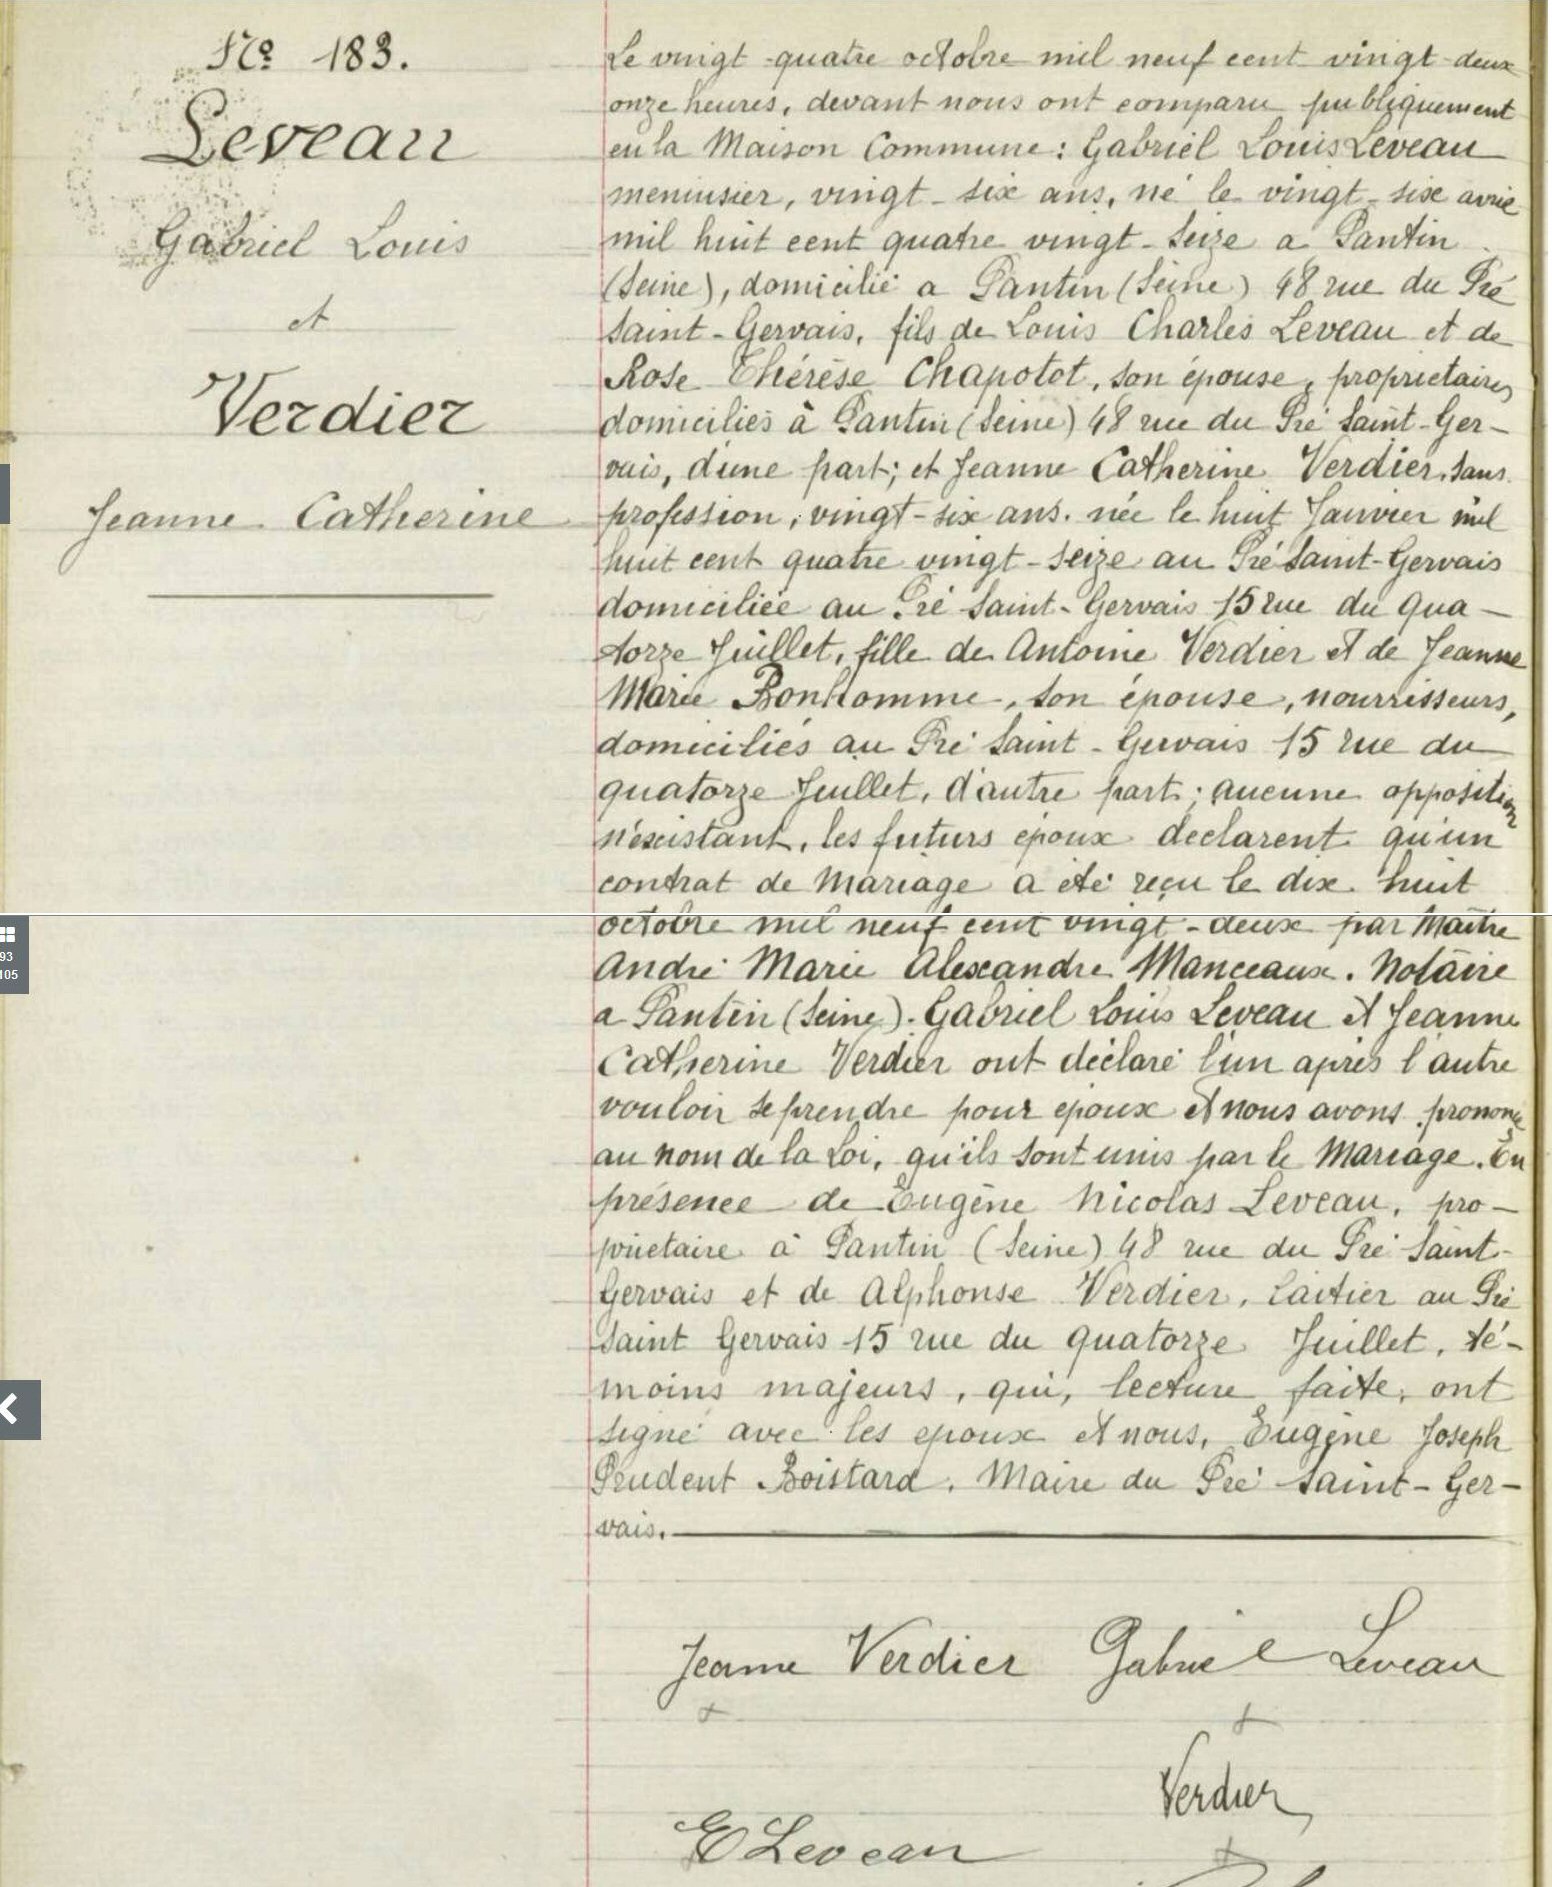 No 183.
Leveau
Gabriel Louis
et
Verdier
Jeanne Catherine
Le vingt-quatre octobre mil neuf cent vingt-deux
onze heures, devant nous ont comparu publiquement
en la Maison Commune : Gabriel Louis Leveau
menuisier, vingt-six ans, né le vingt-six avril
mil huit cent quatre vingt-seize a Pantin
(Seine), domicilié a Pantin (Seine) 48 rue du Pré
Saint-Gervais, fils de Louis Charles Leveau et de
Rose Thérèse Chapotot, son épouse, propriétaires
domiciliés à Pantin (Seine) 48 rue du Pré Saint-Ger-
vais, d'une part; et Jeanne Catherine Verdier, sans
profession, vingt-six ans. née le huit Janvier mil
huit cent quatre vingt-seize au Pré Saint-Gervais
domiciliée au Pré Saint-Gervais 15 rue du Qua-
torze Juillet, fille de Antoine Verdier et de Jeanne
Marie Bonhomme, son épouse, nourrisseurs,
domiciliés au Pré Saint-Gervais 15 rue du
quatorze Juillet, d'autre part; aucune opposition
n'existant, les futurs époux declarent qu'un
contrat de Mariage a été reçu le dix huit
octobre mil neuf cent vingt-deux par Maître
André Marie Alexandre Manceaux. Notaire
a Pantin (Seine). Gabriel Louis Leveau et Jeanne
Catherine Verdier ont déclaré l'un après l'autre
vouloir se prendre pour epoux et nous avons prononcé
au nom de la Loi, qu'ils sont unis par le Mariage. En
présence de Eugène Nicolas Leveau, pro-
priétaire à Pantin (Seine) 48 rue du Pré Saint-
Gervais et de Alphonse Verdier, Laitier au Pré
Saint Gervais 15 rue du Quatorze Juillet, té-
moins majeurs, qui, lecture faite, ont
signé avec les epoux et nous, Eugène Joseph
Prudent Boistard, Maire du Pré Saint-Ger-
vais.
Jeanne Verdier Gabriel Leveau
Verdier
E Leveau
93
105